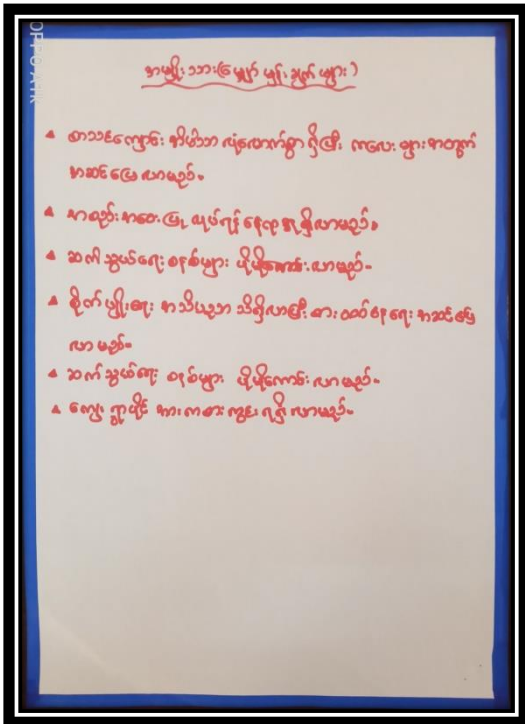 OPPO A1K
အမျိုးသား(မျှော်မှန်းချက်များ)
▲ စာသင်ကျောင်း အိမ်သာ လုံလောက်စွာ ရှိပြီး ကလေးများအတွက်
အဆင်ပြေလာမည်။
▲ အစည်းအဝေးပြုလုပ်ရန် နေရာရရှိလာမည်။
▲ ဆက်သွယ်ရေး စနစ်များ ပိုမိုကောင်းလာမည်။
▲ စိုက်ပျိုးရေး အသိပညာ သိရှိလာပြီး စားဝတ်နေရေး အဆင်ပြေ
လာမည်။
▲ ဆက်သွယ်ရေး စနစ်များ ပိုမိုကောင်းလာမည်။
▲ ကျေးရွာပိုင် အားကစားကွင်း ရရှိလာမည်။